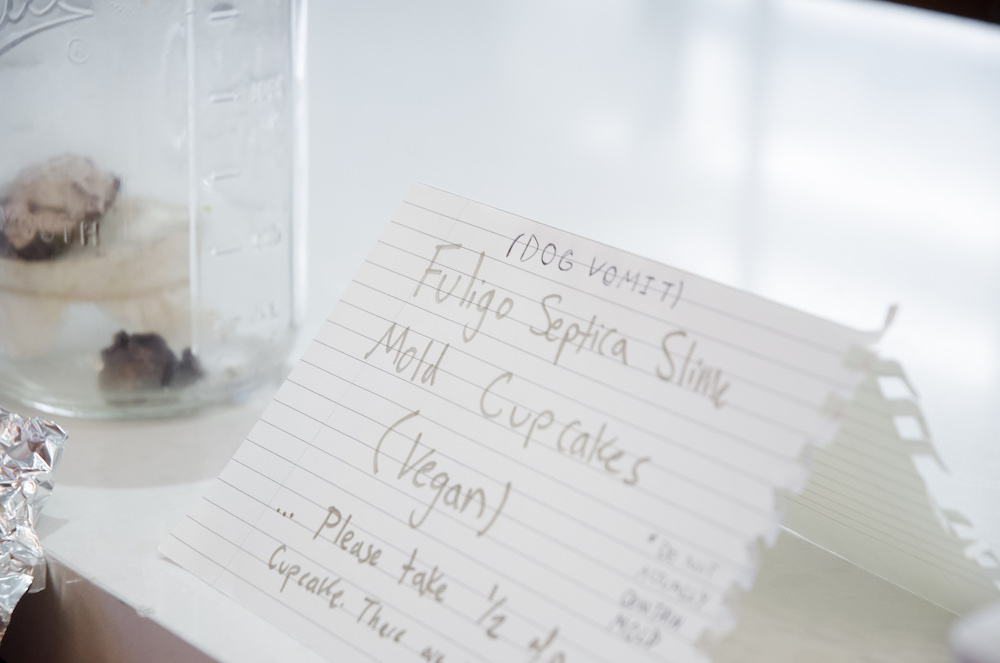 (DOG VOMIT)
Fuligo Septica Slime
Mold Cupcakes
(Vegan)
... Please take 1/2 of
Cupcake. There are
* DO NOT
ACTUALLY
CONTAIN
MOLD